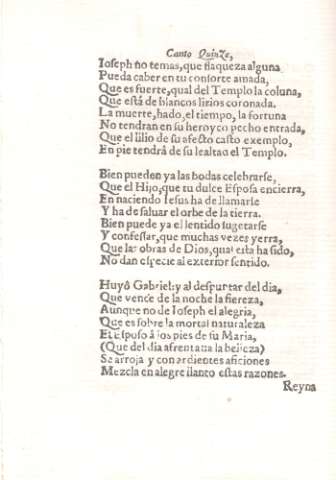 Canto Quinze,
Ioseph ño temas, que flaqueza alguna
Pueda caber en tu consorte amada,
Que es fuerte, qual del Templo la coluna,
Que está de blancos lirios coronada.
La muerte, hado, el tiempo, la fortuna
No tendran en su heroyco pecho entrada,
Que el lilio de su afecto casto exemplo,
En pie tendrá de su lealtad el Templo.
Bien pueden ya las bodas celebrarse,
Que el Hijo, que tu dulce Esposa encierra,
En naciendo Iesus ha de llamarse
Y ha de saluar el orbe de la tierra.
Bien puede ya el sentido sugetarse
Y confessar, que muchas vezes yerra,
Que las obras de Dios, qual esta ha sido,
No dan especie al exterior sentido.
Huyô Gabriel: y al despuntar del dia,
Que vence de la noche la fiereza,
Aunque no de Ioseph el alegria,
Que es sobre la mortal naturaleza
El Esposo á los pies de su Maria,
(Que del dia afrentaua la belleza)
Se arroja y con ardientes aficiones
Mezcla en alegre llanto estas razones.
Reyna